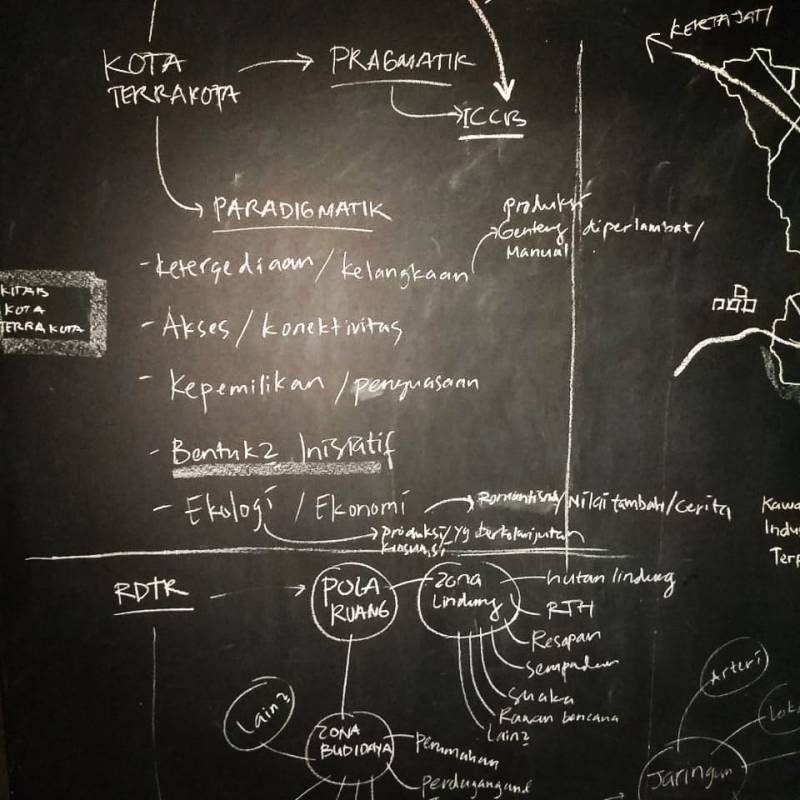 KERTAJATI
KOTA
TERRAKOTA
PRAGMATIK
ICCB
PARADIGMATIK
produksi
Genteng diperlambat/
Manual
- Ketergediaan / kelangkaan
KITAB
KOTA
TERRAKOTA
- Akses / konektivitas
- Kepemilikan / penguasaan
- Bentuk2 Inisiatif
- Ekologi / Ekonomi
Romantisme/Nilai tambah/cerita
produksi/yg berkelanjutan
konsumsi
Kawa
Indu
Terp
RDTR
POLA
RUANG
Zona
Lindung
hutan lindung
RTH
Resapan
Sempadan
Suaka
Rawan bencana
Lain2
Lain2
ZONA
BUDIDAYA
Perumahan
Perdagangan
Arteri
Loka
Jaringan